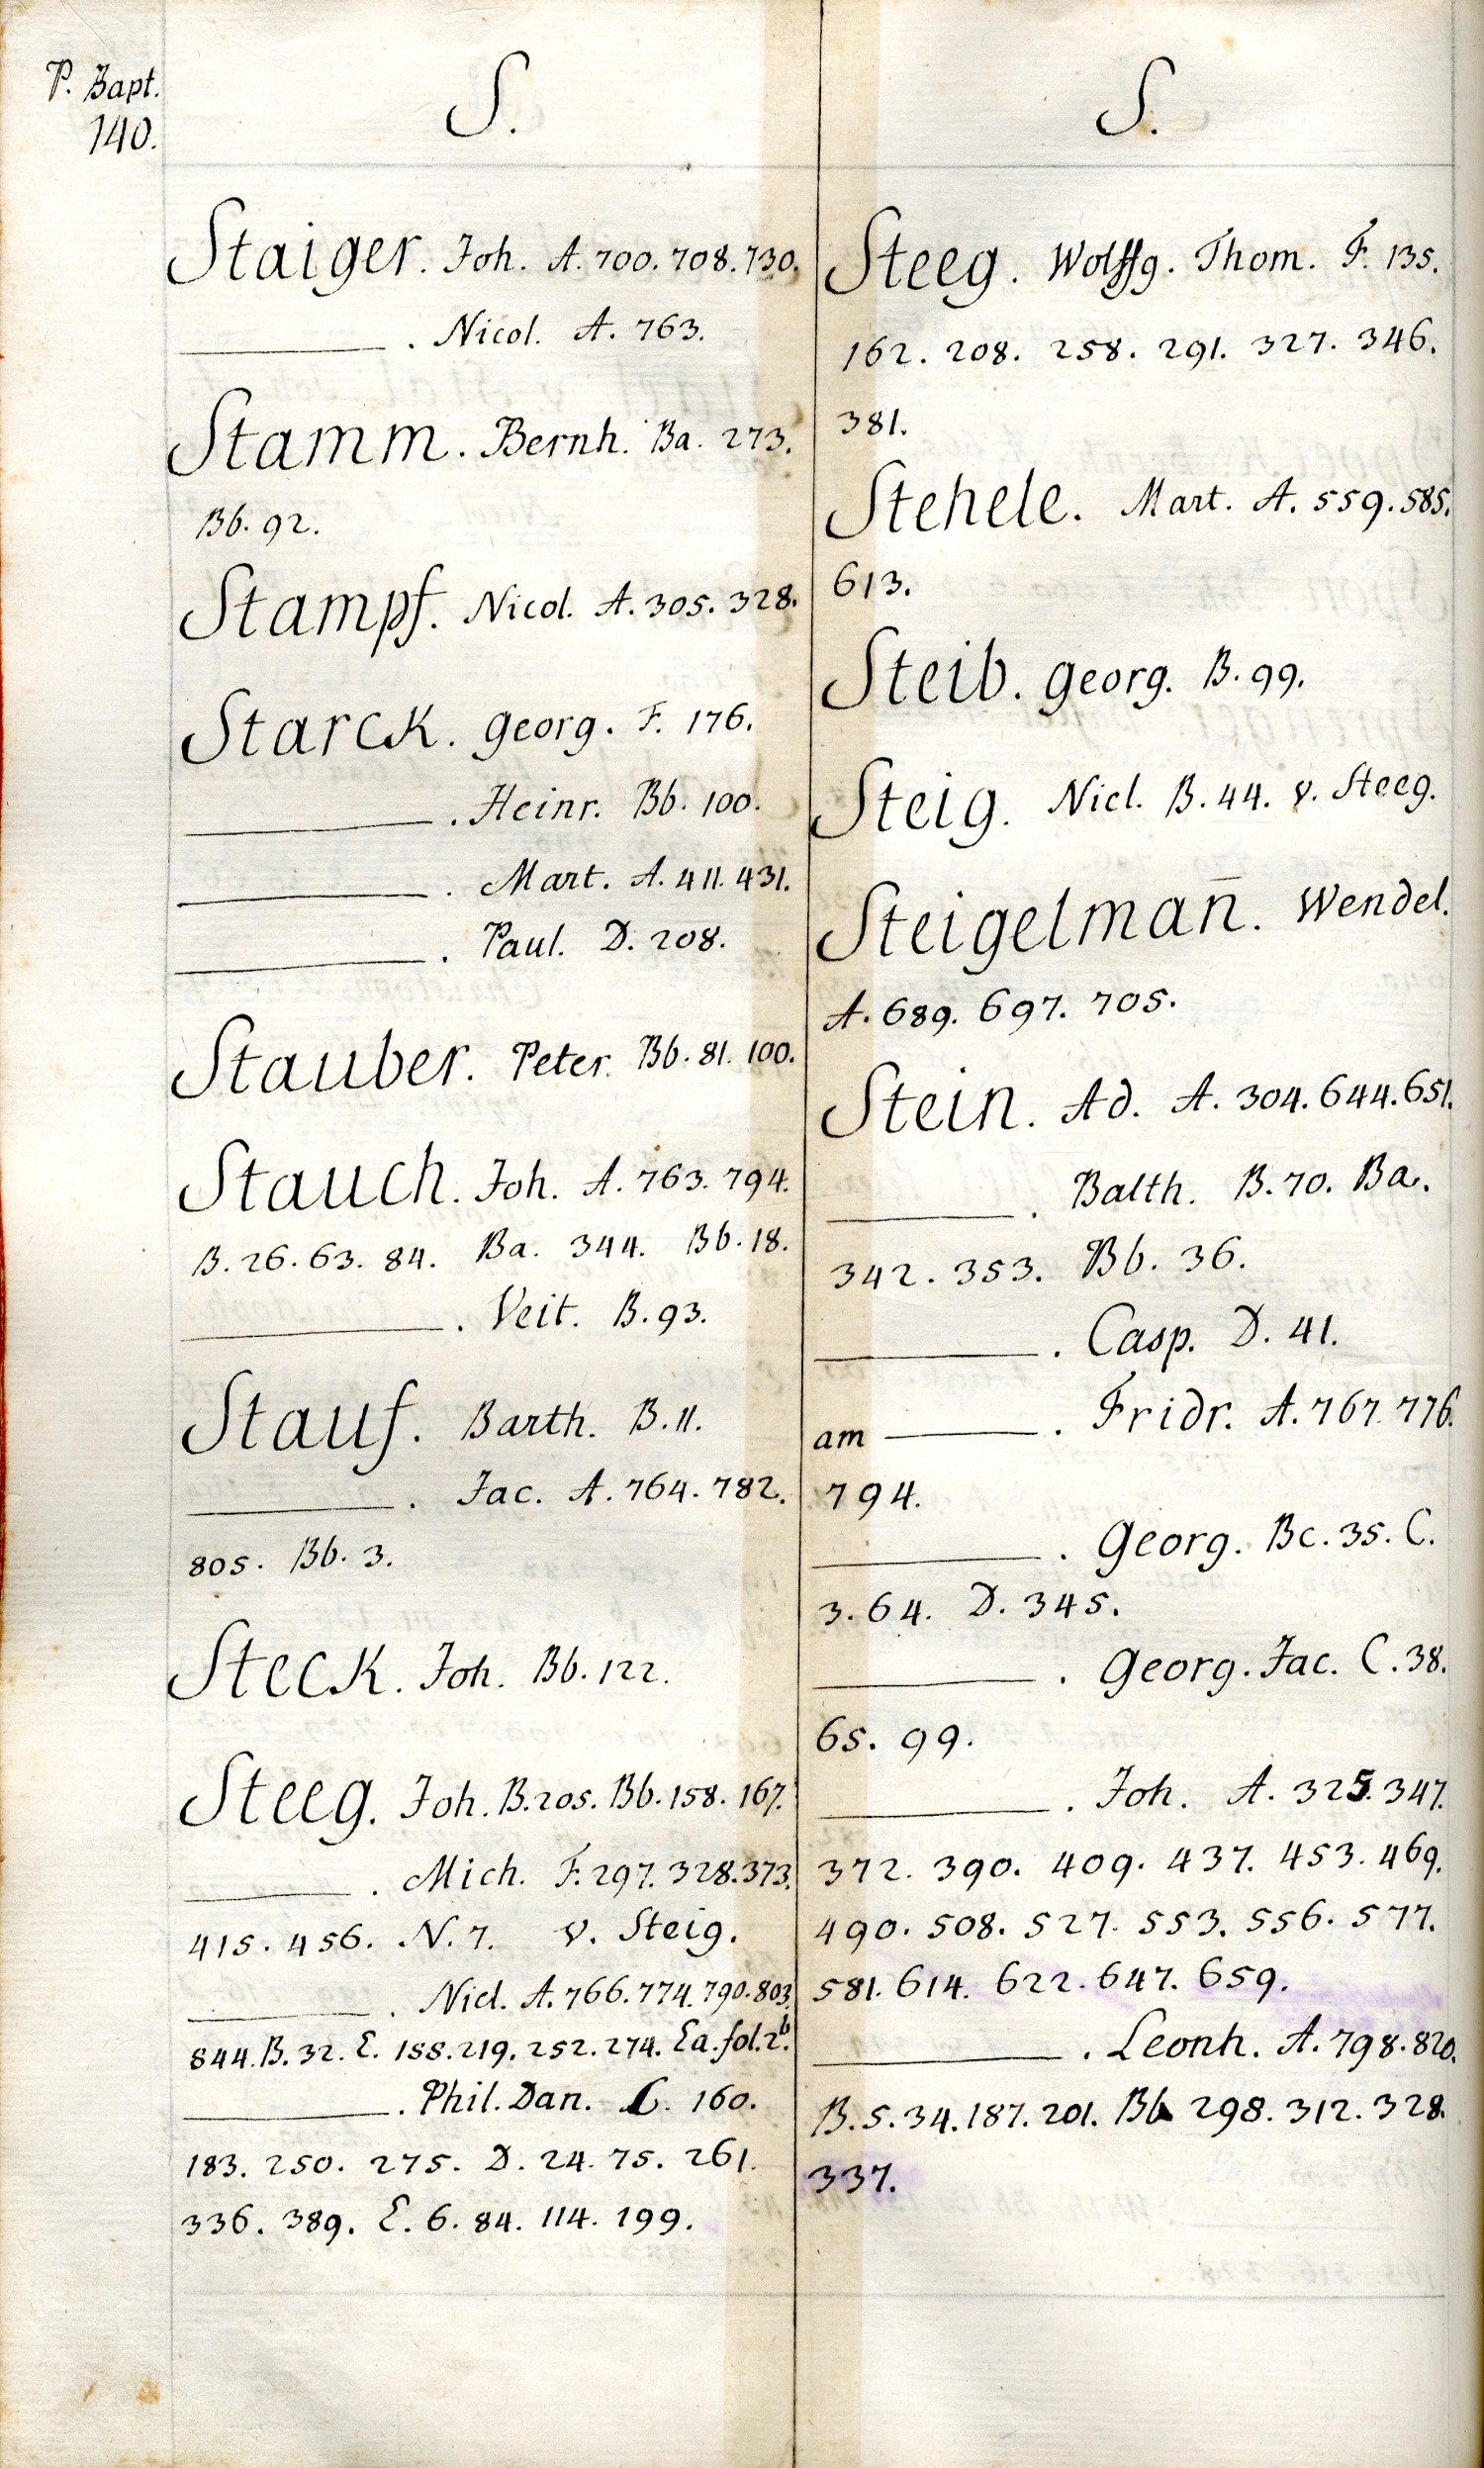 P. Bapt.
140.
S.
Staiger. Joh. A. 700. 708. 730.
——. Nicol. A. 763.
Stamm. Bernh. Ba. 273.
Bb. 92.
Stampf. Nicol. A. 305. 328.
Starck. Georg. F. 176.
——. Heinr. Bb. 100.
——. Mart. A. 411. 431.
——. Paul. D. 208.
Stauber. Peter. Bb. 81. 100.
Stauch. Joh. A. 763. 794.
B. 26. 63. 84. Ba. 344. Bb. 18.
——. Veit. B. 93.
Stauf. Barth. B. 11.
——. Jac. A. 764. 782.
805. Bb. 3.
Steck. Joh. Bb. 122.
Steeg. Joh. B. 205. Bb. 158. 167.
——. Mich. F. 297. 328. 373.
415. 456. N. 7. v. Steig.
——. Nicl. A. 766. 774. 790. 803.
844. B. 32. E. 188. 219. 252. 274. Ea. fol. 2.b
——. Phil. Dan. C. 160.
183. 250. 275. D. 24. 75. 261.
336. 389. E. 6. 84. 114. 199.
S.
Steeg. Wolffg. Thom. F. 135.
162. 208. 258. 291. 327. 346.
381.
Stehele. Mart. A. 559. 585.
613.
Steib. Georg. B. 99.
Steig. Nicl. B. 44. v. Steeg.
Steigelman̄. Wendel.
A. 689. 697. 705.
Stein. Ad. A. 304. 644. 651.
——. Balth. B. 70. Ba.
342. 353. Bb. 36.
——. Casp. D. 41.
am ——. Fridr. A. 767. 776.
794.
——. Georg. Bc. 35. C.
3. 64. D. 345.
——. Georg. Jac. C. 38.
65. 99.
——. Joh. A. 325. 347.
372. 390. 409. 437. 453. 469.
490. 508. 527. 553. 556. 577.
581. 614. 622. 647. 659.
——. Leonh. A. 798. 820.
B. 5. 34. 187. 201. Bb 298. 312. 328.
337.